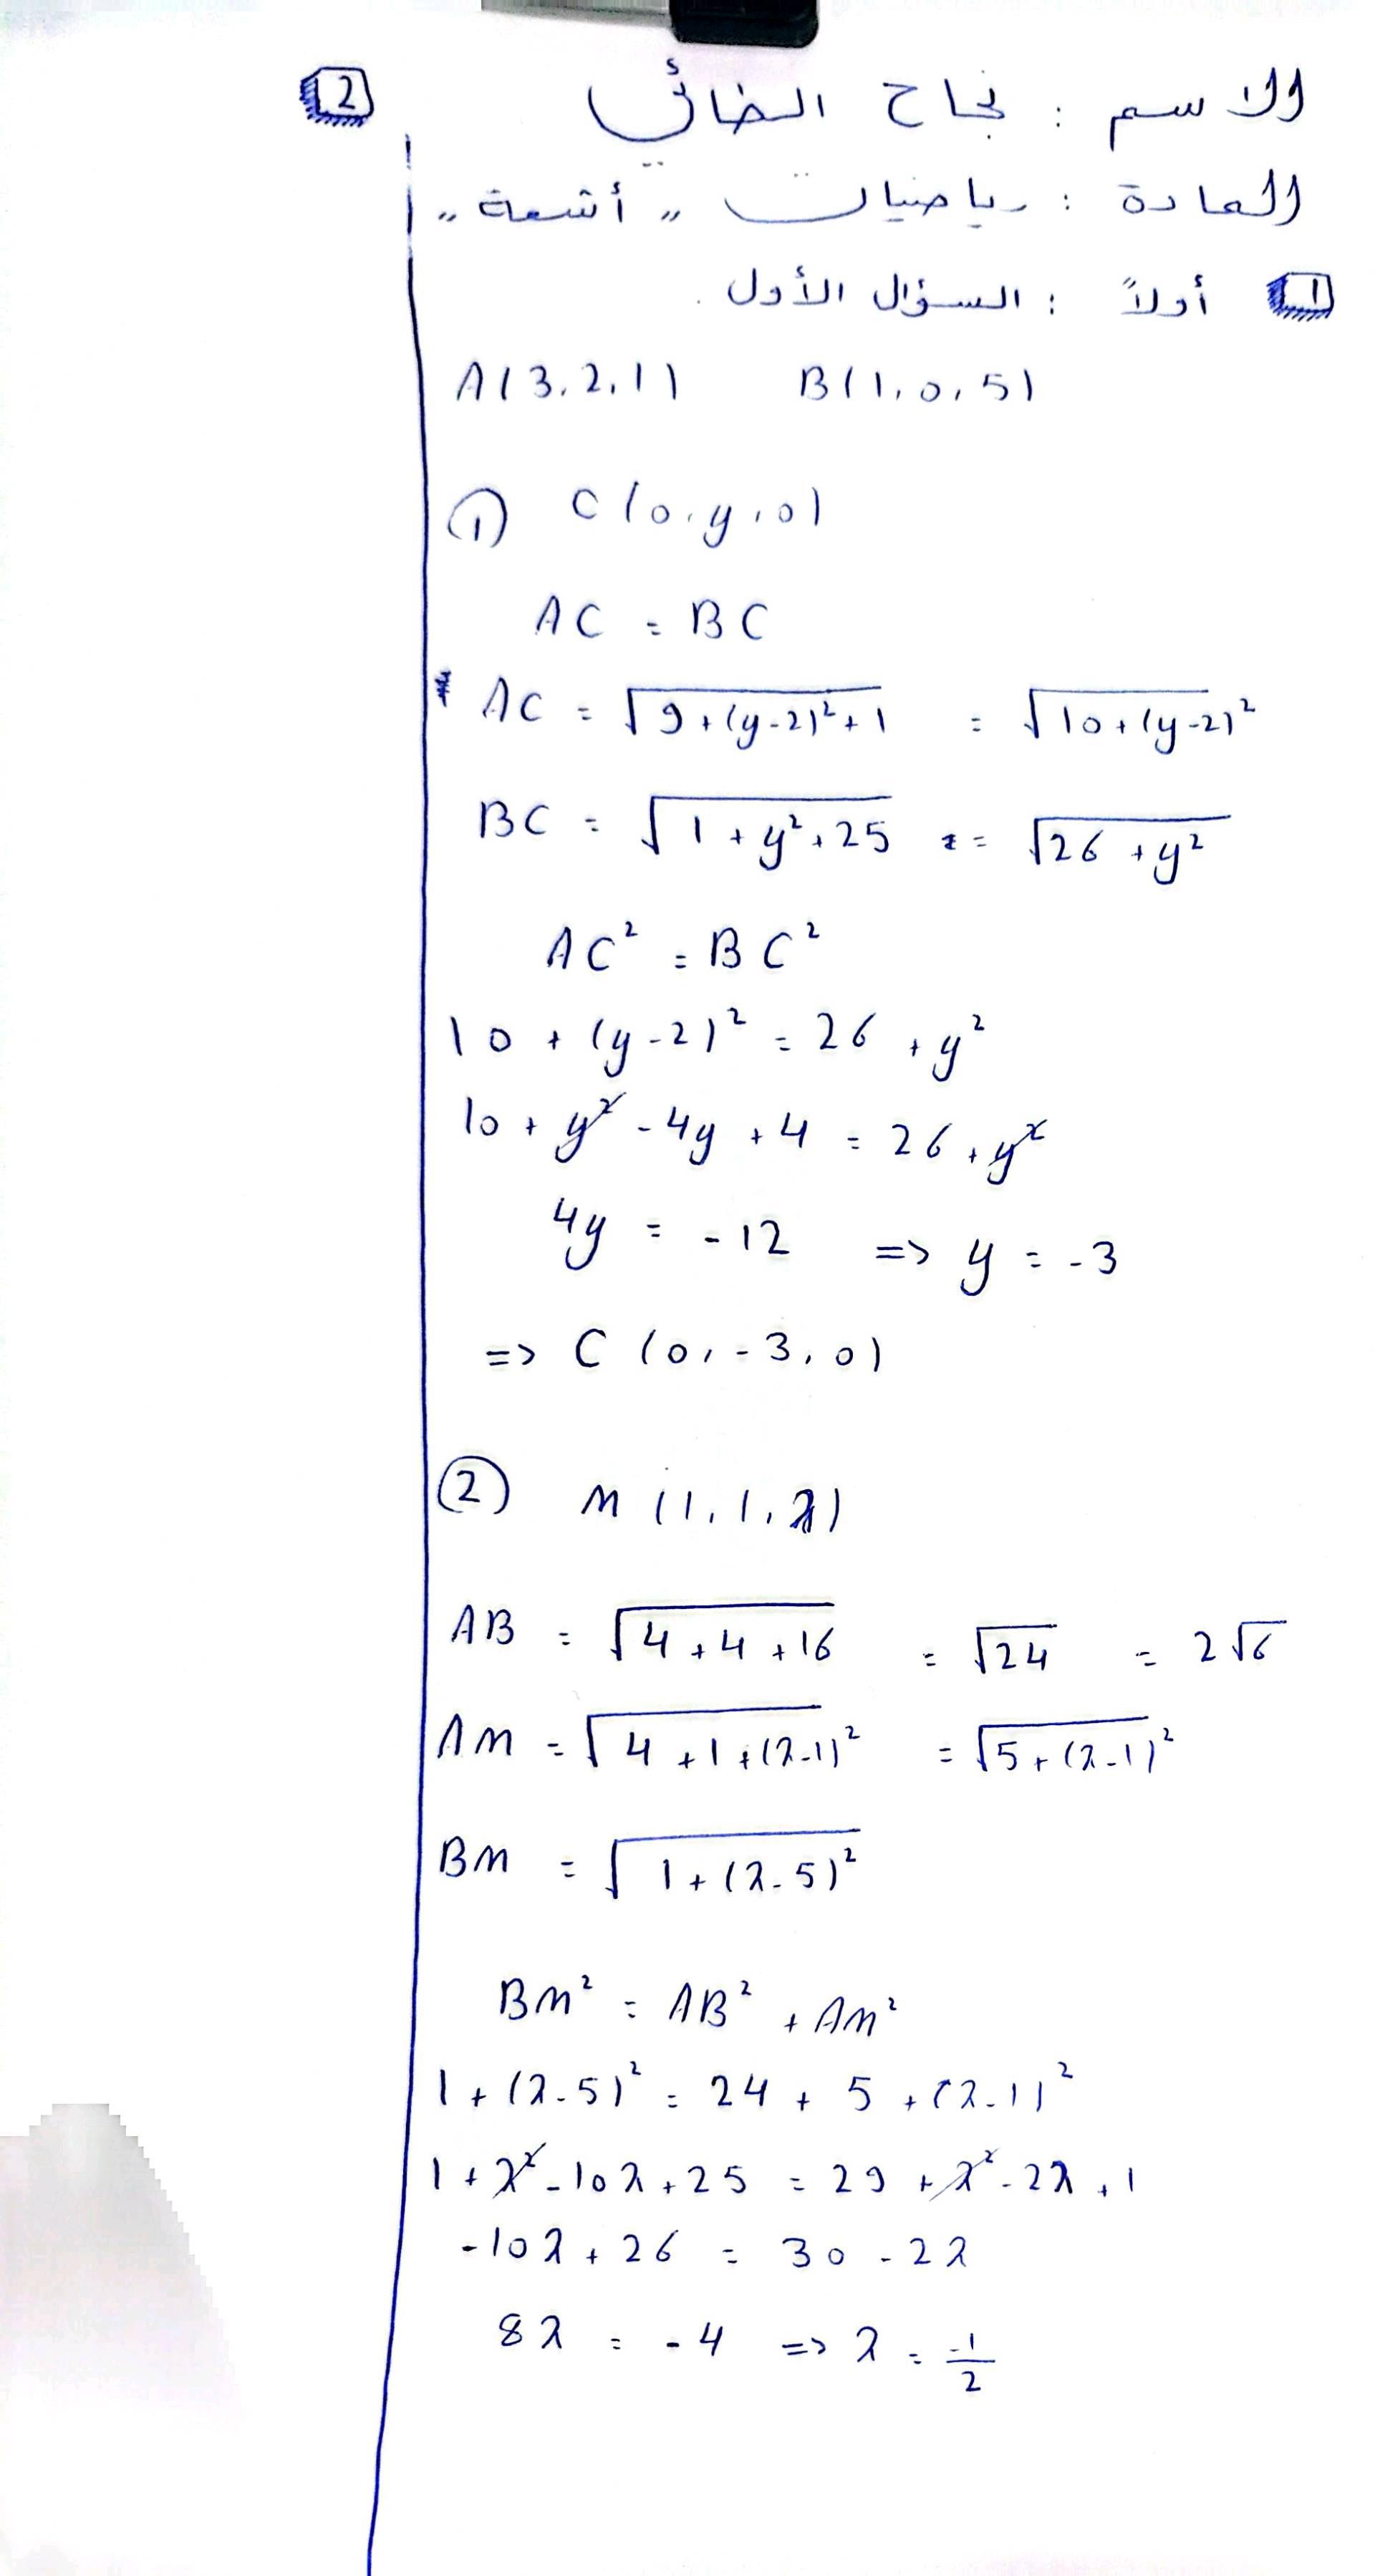 2
الاسم : نجاح الضائي
المادة : رياضيات " أشعة "
1 أولاً : السؤال الأول .
A(3,2,1) B(1,0,5)
① C(0,y,0)
AC = BC
AC = √9+(y-2)²+1 = √10+(y-2)²
BC = √1+y²+25 = √26+y²
AC² = BC²
10 + (y-2)² = 26 + y²
10 + y² - 4y + 4 = 26 + y²
4y = -12 => y = -3
=> C (0,-3,0)
② M (1,1,λ)
AB = √4+4+16 = √24 = 2√6
AM = √4+1+(λ-1)² = √5+(λ-1)²
BM = √1+(λ-5)²
BM² = AB² + AM²
1 + (λ-5)² = 24 + 5 + (λ-1)²
1 + λ² - 10λ + 25 = 29 + λ² - 2λ + 1
-10λ + 26 = 30 - 2λ
8λ = -4 => λ = -1/2